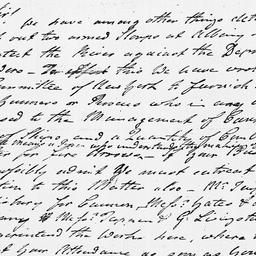 We have among other things det
out two armed Sloops at Albany
tect the River against the Dep
ders — To effect this We have wrote
ommittee of New York to furnish
Gunners or Persons who in any
sed to the Management of Cannon
of Guns, and a Quantity of
means a person who understands the making
for fire Arrows — If your
possibly admit We must entreat
tion to this Matter also — Mr. Jay
isbury for Cannon, Messrs Gates &
Messrs Tappen & G. Livingston
uperintend the Works here, where
at Your Attendance as soon as